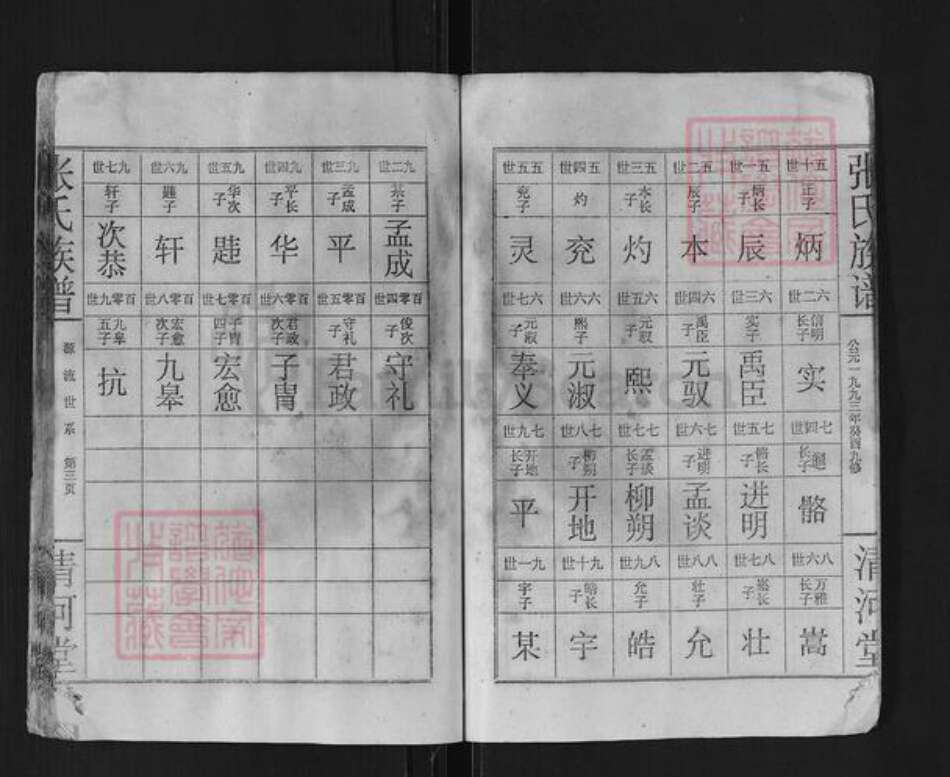 张氏族谱
公元一九九三年癸酉九修
清河堂
五十世
正子
炳
五一世
炳长子
辰
五二世
辰子
本
五三世
本长子
灼
五四世
灼
兖
五五世
兖子
灵
六二世
信明长子
实
六三世
实子
禹臣
六四世
禹臣子
元驭
六五世
元驭子
熙
六六世
熙子
元淑
六七世
元淑子
奉义
七四世
长子
骼
七五世
骼长子
进明
七六世
进明子
孟谈
七七世
孟谈长子
柳朔
七八世
柳朔子
开地
七九世
开地长子
平
八六世
万雅长子
嵩
八七世
嵩长子
壮
八八世
壮子
允
八九世
允子
皓
九十世
皓长子
宇
九一世
宇子
某
九二世
某子
孟成
九三世
孟成子
平
九四世
平长子
华
九五世
华次子
韪
九六世
韪子
轩
九七世
轩子
次恭
百零四世
俊次子
守礼
百零五世
守礼子
君政
百零六世
君政次子
子胄
百零七世
子胄四子
宏愈
百零八世
宏愈次子
九皋
百零九世
九皋五子
抗
张氏族谱
源流世系 第三页
清河堂